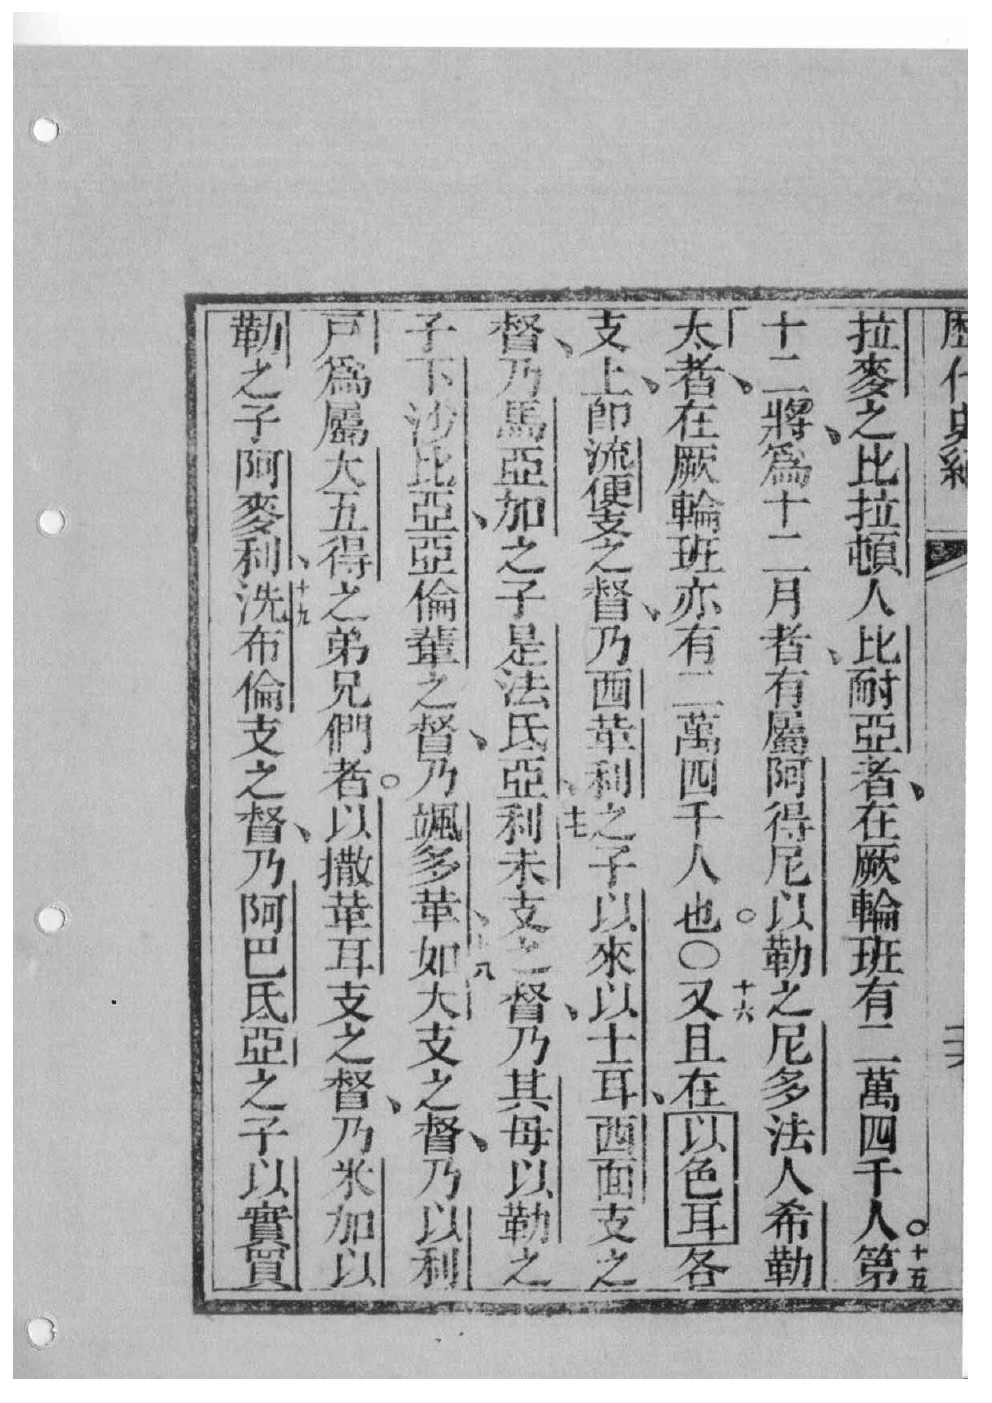 歷代史紀
拉麥之比拉頓人比耐亞者在厥輪班有二萬四千人第十五
十二將爲十二月者有屬阿得尼以勒之尼多法人希勒
太者在厥輪班亦有二萬四千人也〇十六又且在以色耳各
支上卽流便支之督乃西菲利之子以來以士耳西面支之
督乃馬亞加之子是法氐亞十七利未支之督乃其母以勒之
子下沙比亞亞倫輩之督乃颯多十八如大支之督乃以利
戸爲屬大五得之弟兄們者以撒耳支之督乃米加以
勒之子阿麥利十九洗布倫支之督乃阿巴氐亞之子以實買